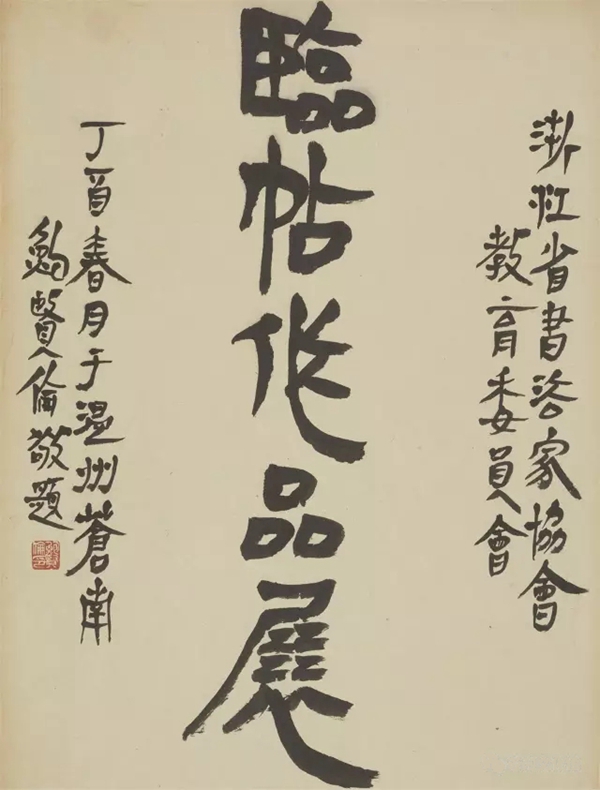 浙江省書法家協會
教育委員會
臨帖作品展
丁酉春月于溫州蒼南
鮑賢倫敬題